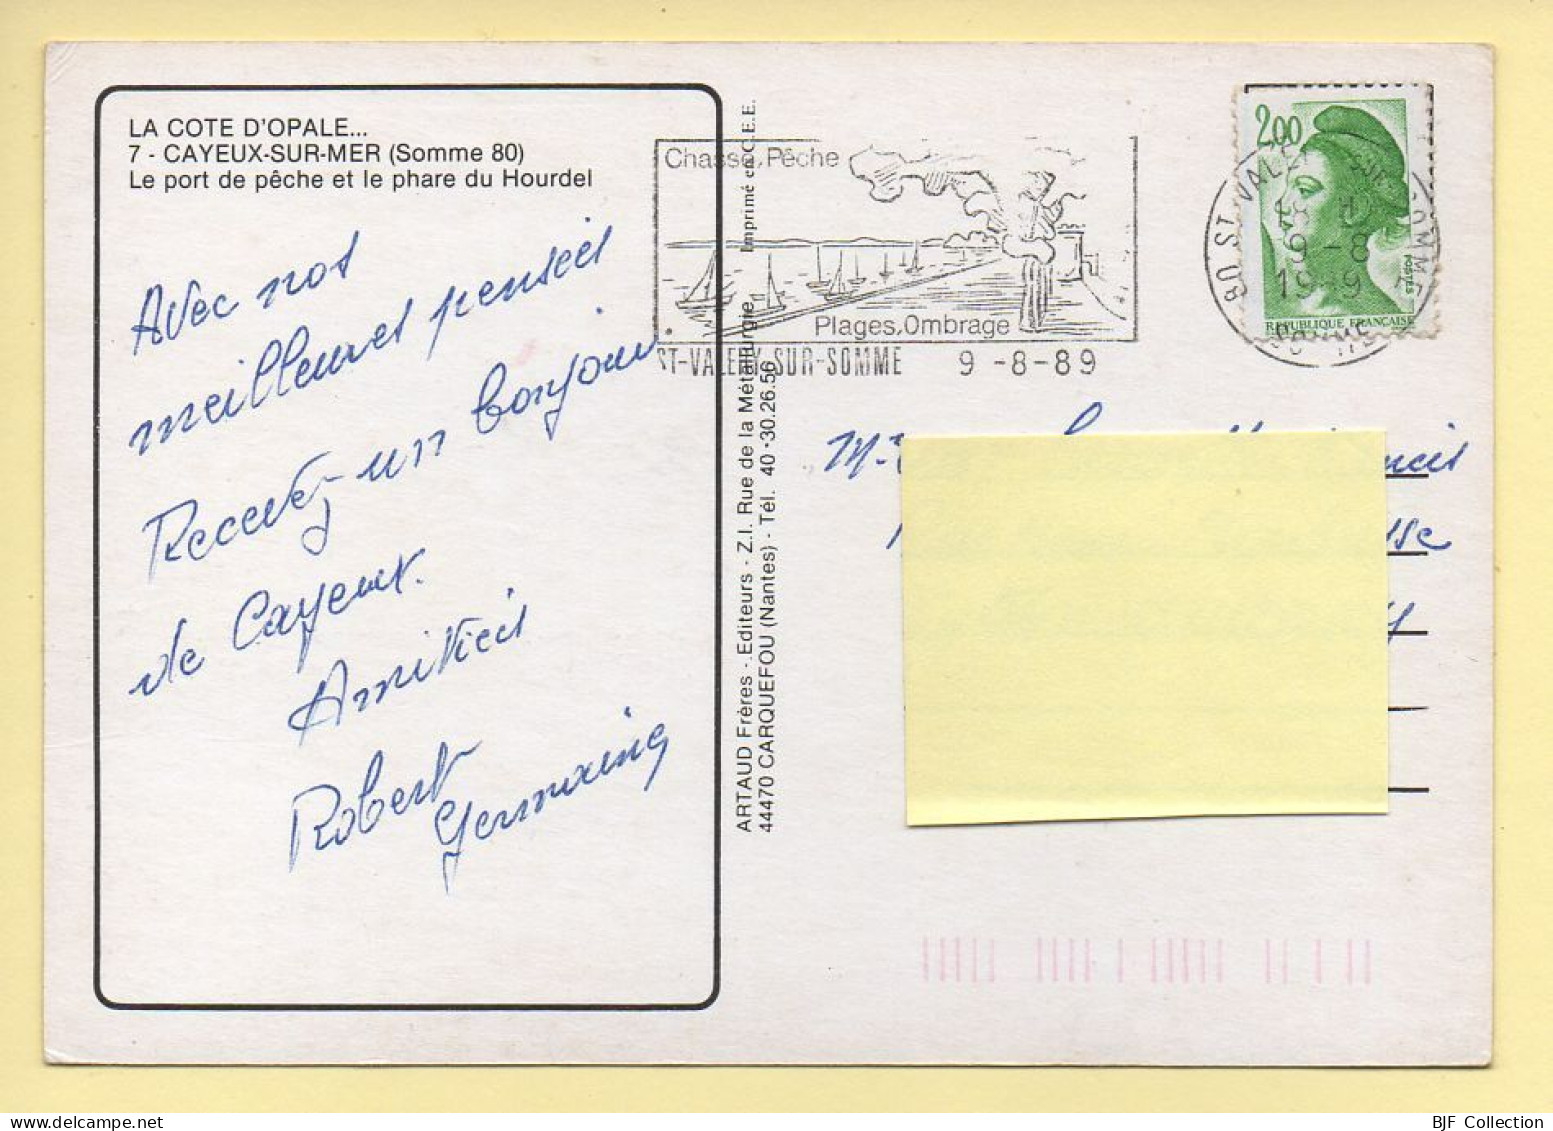 LA COTE D'OPALE...
7 - CAYEUX-SUR-MER (Somme 80)
Le port de pêche et le phare du Hourdel
Avec nos
meilleures pensées
Recevez un bonjour
de Cayeux.
Amitiés
Robert
Germaine
ARTAUD Frères - Editeurs - Z.I. Rue de la Métallurgie
44470 CARQUEFOU (Nantes) - Tél. 40 · 30.26.56
Imprimé en C.E.E.
Chasse, Pêche
Plages, Ombrage
ST-VALERY-SUR-SOMME 9 -8-89
2,00
POSTES
REPUBLIQUE FRANÇAISE
80 ST VALERY SUR SOMME
9 -8
SOMME
BJF Collection